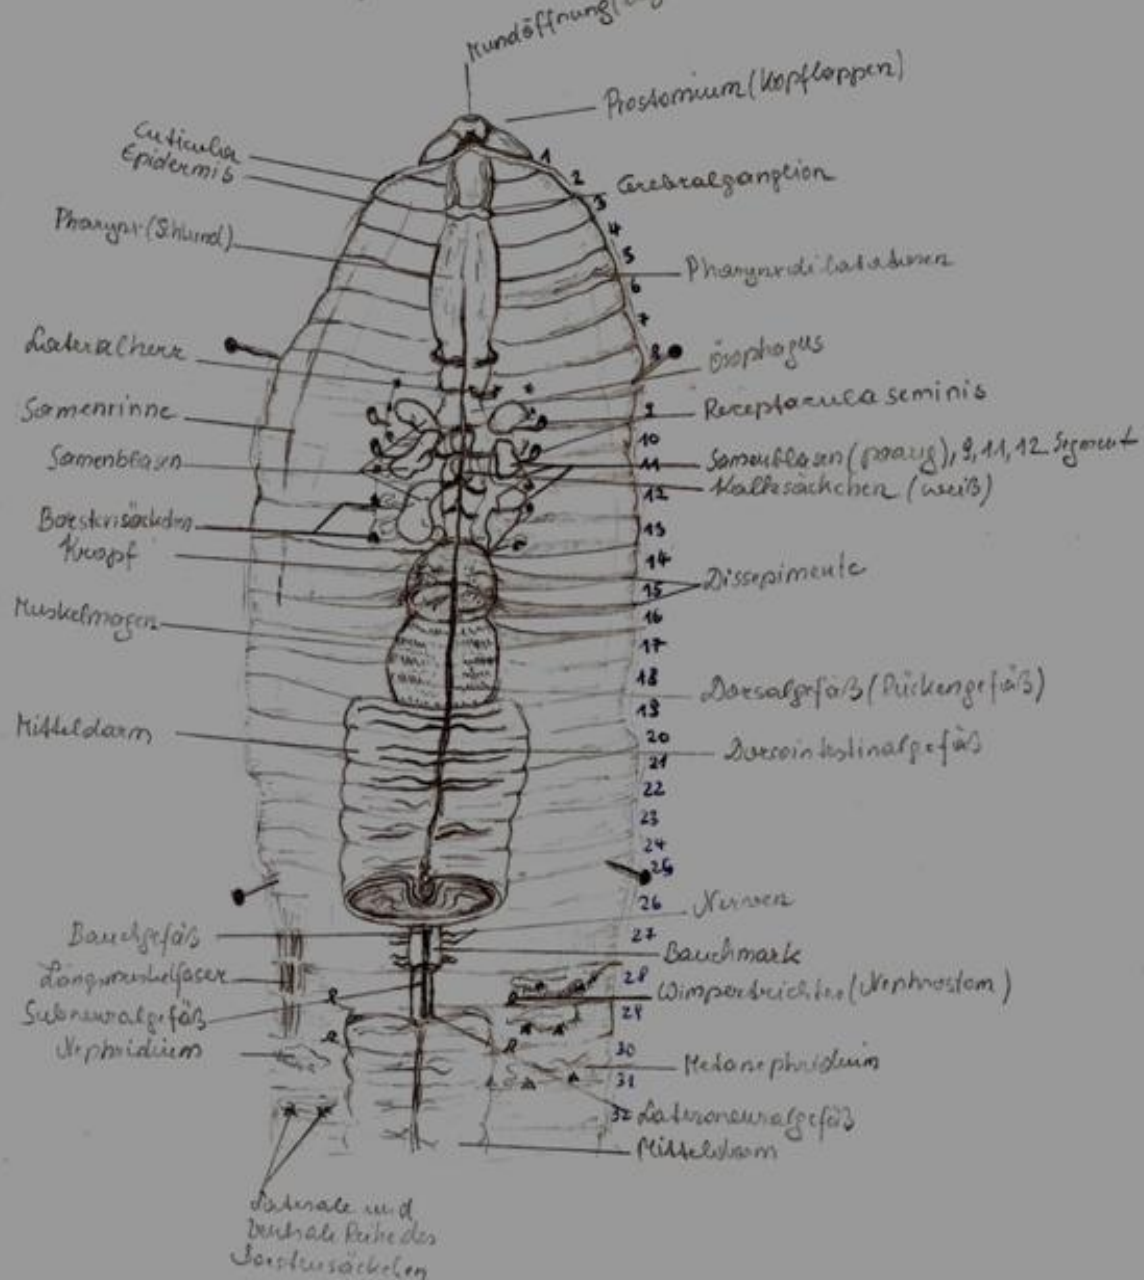 Mundöffnung
Prostomium (Kopflappen)
Cuticula
Epidermis
Cerebralganglion
Pharynx (Schlund)
Pharynxdilatatoren
Lateralherz
Ösophagus
Samenrinne
Receptacula seminis
Samenblasen
Samenblasen (paarig), 9, 11, 12. Segment
Kalksäckchen (weiß)
Borstensäckchen
Kropf
Dissepimente
Muskelmagen
Dorsalgefäß (Rückengefäß)
Mitteldarm
Dorsointestinalgefäß
Nerven
Bauchgefäß
Bauchmark
Längsmuskelfaser
Wimpertrichter (Nephrostom)
Subneuralgefäß
Nephridium
Metanephridium
Lateroneuralgefäß
Mitteldarm
Laterale und
Ventrale Reihe des
Borstensäckchen
1
2
3
4
5
6
7
8
9
10
11
12
13
14
15
16
17
18
19
20
21
22
23
24
25
26
27
28
29
30
31
32